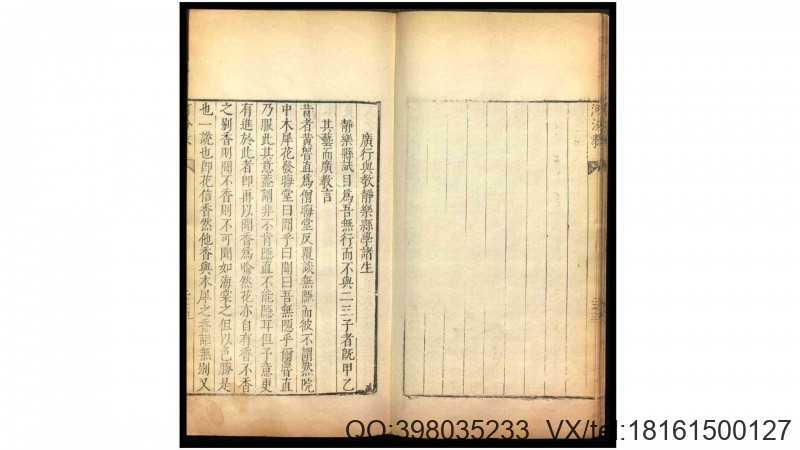 廣行與教靜樂縣學諸生
靜樂縣試目為吾無行而不與二三子者旣甲乙
其藝而廣教言
昔者黃魯直為僧晦堂反覆談無隱而彼不謂然院
中木犀花發晦堂曰聞乎曰聞曰吾無隱乎爾魯直
乃服此其意蓋謂非不肯隱直不能隱耳但予意更
有進於此者即再以聞香為喻然花亦自有香不香
之别香則聞不香則不可聞如海棠之但以色勝是
也一說也即花信香然他香與木犀之香詎無别又
QQ:398035233 VX/tel:18161500127